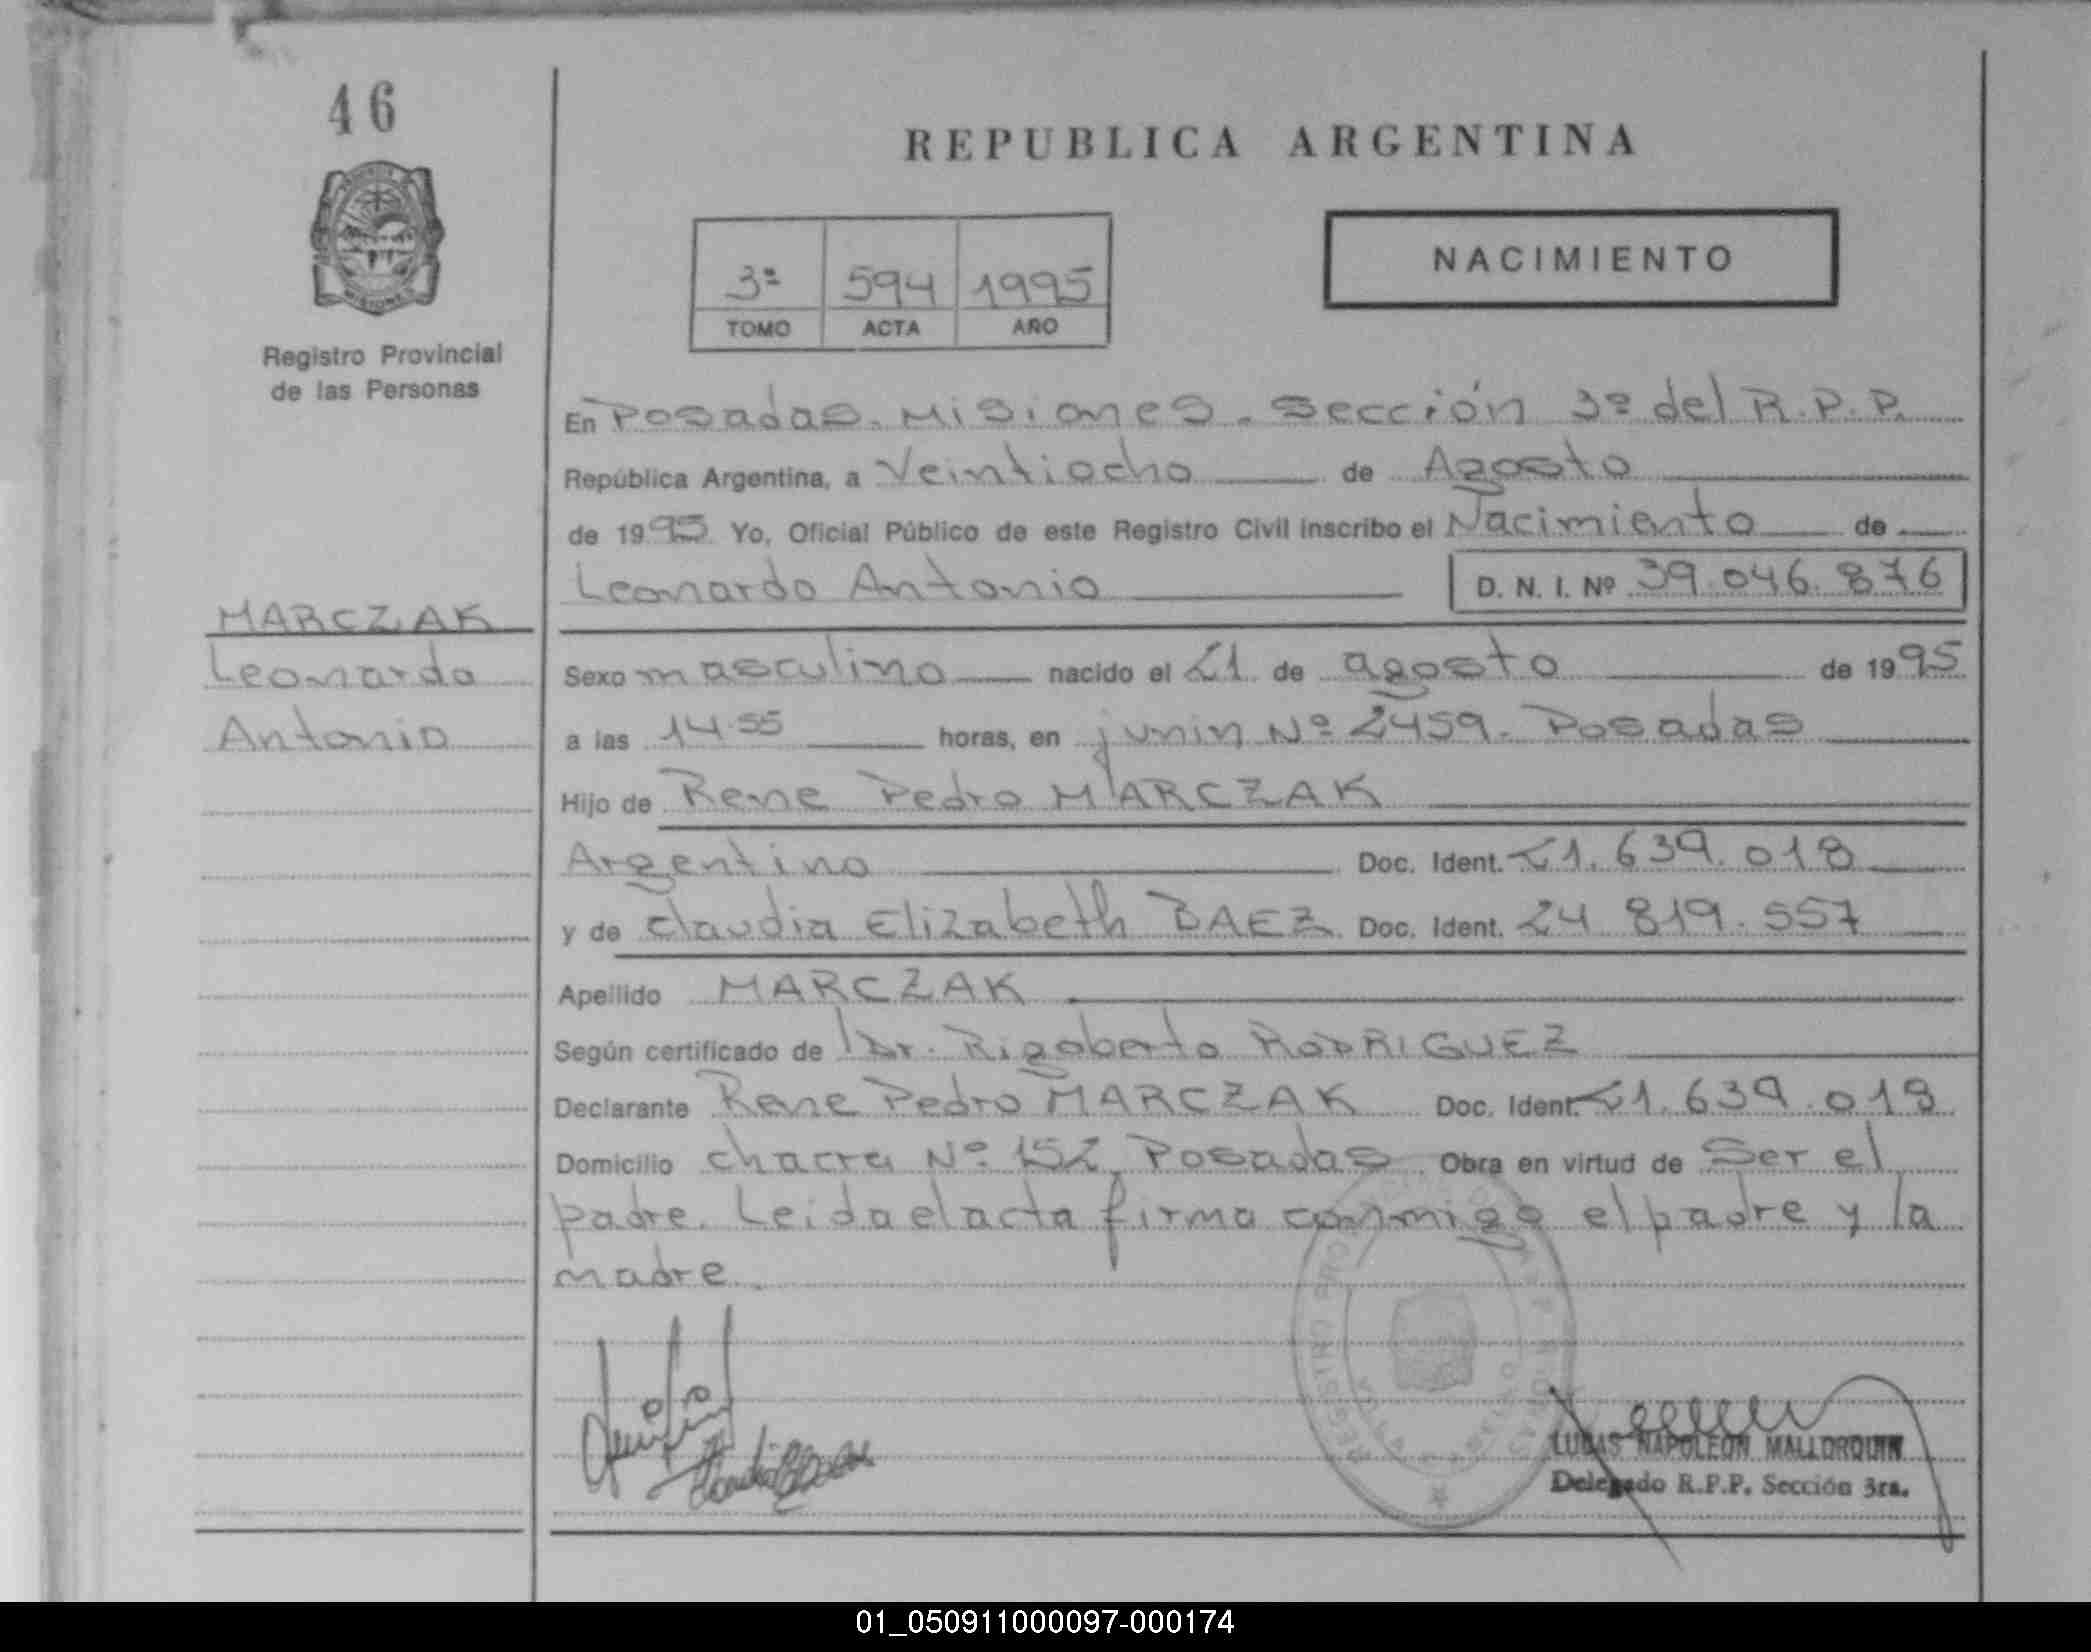 46
REPUBLICA ARGENTINA
NACIMIENTO
3ª 594 1995
TOMO ACTA AÑO
Registro Provincial
de las Personas
En Posadas. Misiones. Sección 3º del R.P.P.
República Argentina, a Veintiocho de Agosto
de 1995 Yo, Oficial Público de este Registro Civil inscribo el Nacimiento de
Leonardo Antonio D. N. I. Nº 39.046.876
MARCZAK
Leonardo
Antonio
Sexo masculino nacido el 21 de agosto de 1995
a las 14.55 horas, en junin Nº 2459. Posadas
Hijo de Rene Pedro MARCZAK
Argentino Doc. Ident. 21.639.018
y de Claudia Elizabeth BAEZ Doc. Ident. 24 819.557
Apellido MARCZAK
Según certificado de Dr. Rigoberto RODRIGUEZ
Declarante Rene Pedro MARCZAK Doc. Ident. 21.639.018
Domicilio chacra Nº 152, Posadas Obra en virtud de Ser el
padre. Leida el acta firma conmigo el padre y la
madre.
LUCAS NAPOLEON MALLORQUIN
Delegado R.P.P. Sección 3ra.
01_050911000097-000174